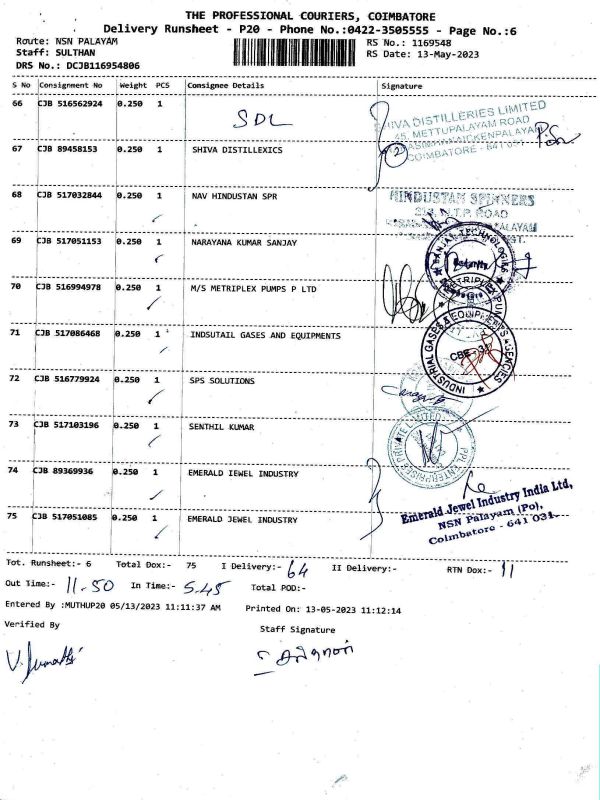 THE PROFESSIONAL COURIERS, COIMBATORE
Delivery Runsheet - P20 - Phone No.:0422-3505555 - Page No.:6
Route: NSN PALAYAM RS No.: 1169548
Staff: SULTHAN RS Date: 13-May-2023
DRS No.: DCJB116954806
S No Consignment No Weight PCS Consignee Details Signature
66 CJB 516562924 0.250 1
SDL
SHIVA DISTILLERIES LIMITED
45, METTUPALAYAM ROAD
COIMBATORE - 641 031
67 CJB 89458153 0.250 1 SHIVA DISTILLEXICS 2
68 CJB 517032844 0.250 1 NAV HINDUSTAN SPR
HINDUSTAN SPINNERS
69 CJB 517051153 0.250 1 NARAYANA KUMAR SANJAY
70 CJB 516994978 0.250 1 M/S METRIPLEX PUMPS P LTD
71 CJB 517086468 0.250 1 INDSUTAIL GASES AND EQUIPMENTS
INDUSTRIAL GASES & EQUIPMENTS AGENCIES
CBE-31
72 CJB 516779924 0.250 1 SPS SOLUTIONS
73 CJB 517103196 0.250 1 SENTHIL KUMAR
74 CJB 89369936 0.250 1 EMERALD IEWEL INDUSTRY
75 CJB 517051085 0.250 1 EMERALD JEWEL INDUSTRY
Emerald Jewel Industry India Ltd,
NSN Palayam (Po),
Coimbatore - 641 031.
Tot. Runsheet:- 6 Total Dox:- 75 I Delivery:- 64 II Delivery:- RTN Dox:- 11
Out Time:- 11.50 In Time:- 5.45 Total POD:-
Entered By :MUTHUP20 05/13/2023 11:11:37 AM Printed On: 13-05-2023 11:12:14
Verified By Staff Signature